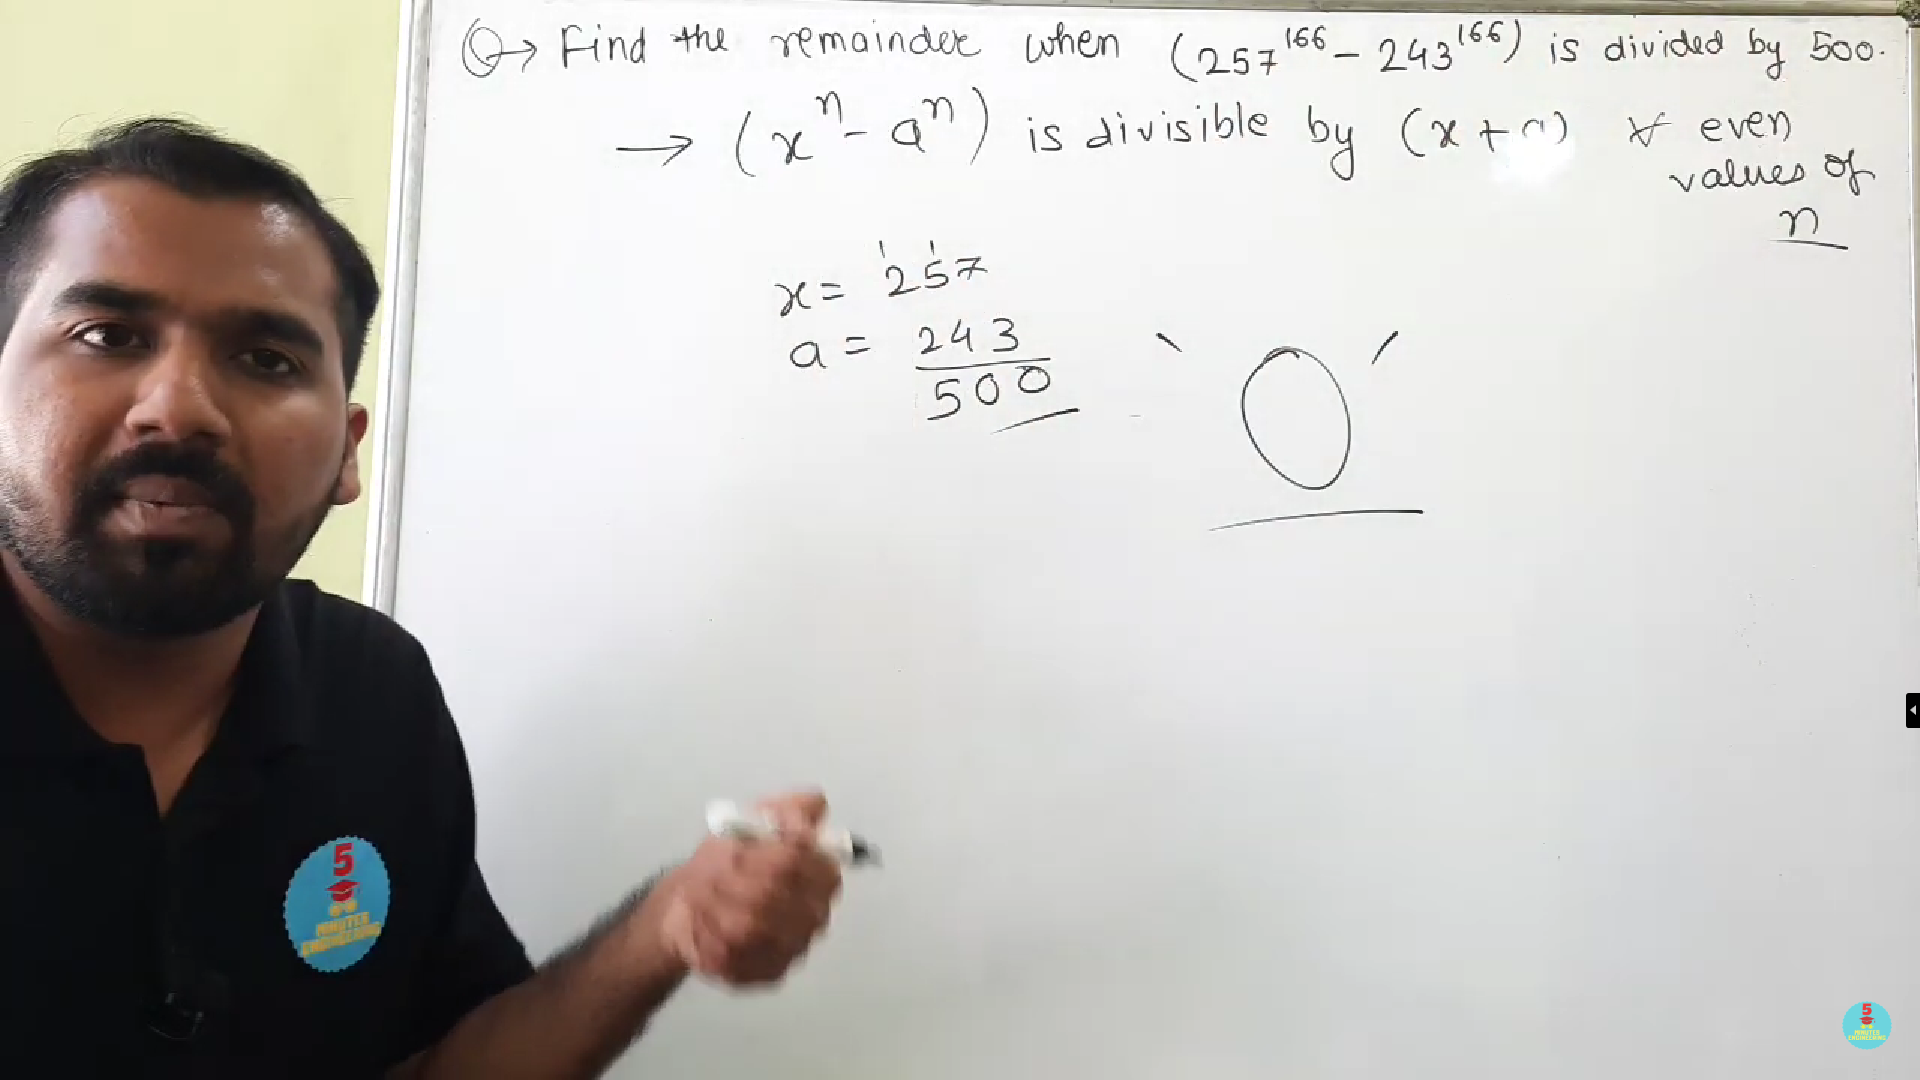 Q→ Find the remainder when (257¹⁶⁶ - 243¹⁶⁶) is divided by 500.
→ (xⁿ - aⁿ) is divisible by (x + a) ∀ even
values of
n
1 1
x = 257
a = 243
500
0
5
MINUTES
ENGINEERING
5
MINUTES
ENGINEERING